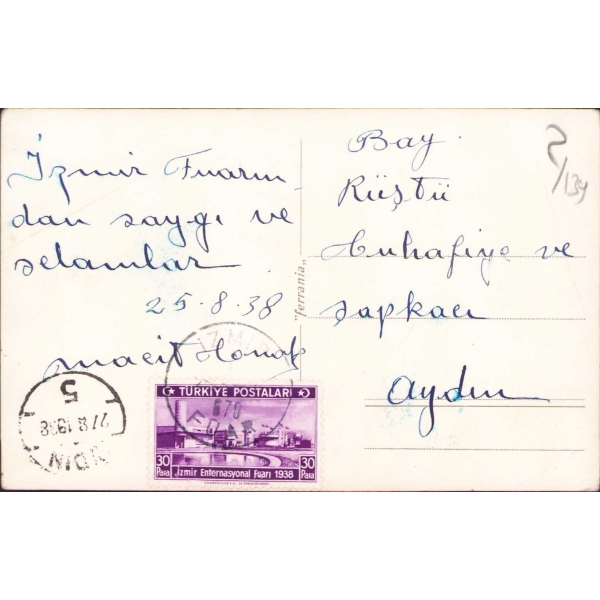 İzmir Fuarın
dan saygı ve
selamlar
25-8-38
macit
Bay
Rüştü
tuhafiye ve
şapkacı
Aydın
2/139
"ferrania"
İZMİR
FUAR
TÜRKİYE POSTALARI
30 Para
İzmir Enternasyonal Fuarı 1938
30 Para
27.8.1938
5